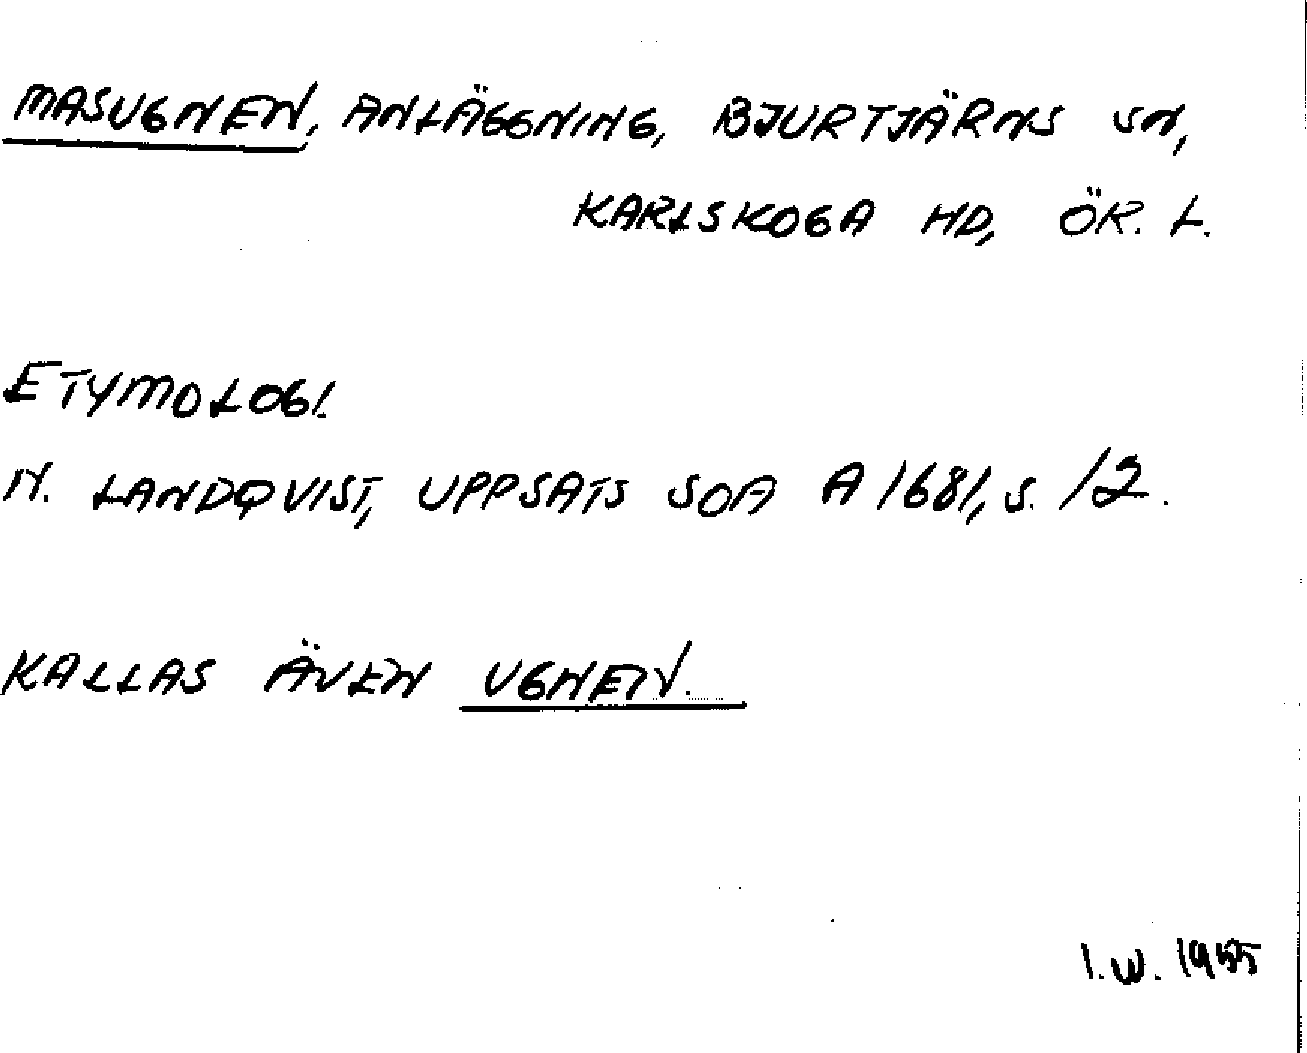 MASUGNEN, ANLÄGGNING, BJURTJÄRNS SN,
KARLSKOGA HD, ÖR. L.
ETYMOLOGI.
N. LANDQVIST, UPPSATS SOA A 1681, S. 12.
KALLAS ÄVEN UGNEN.
I.W. 1955